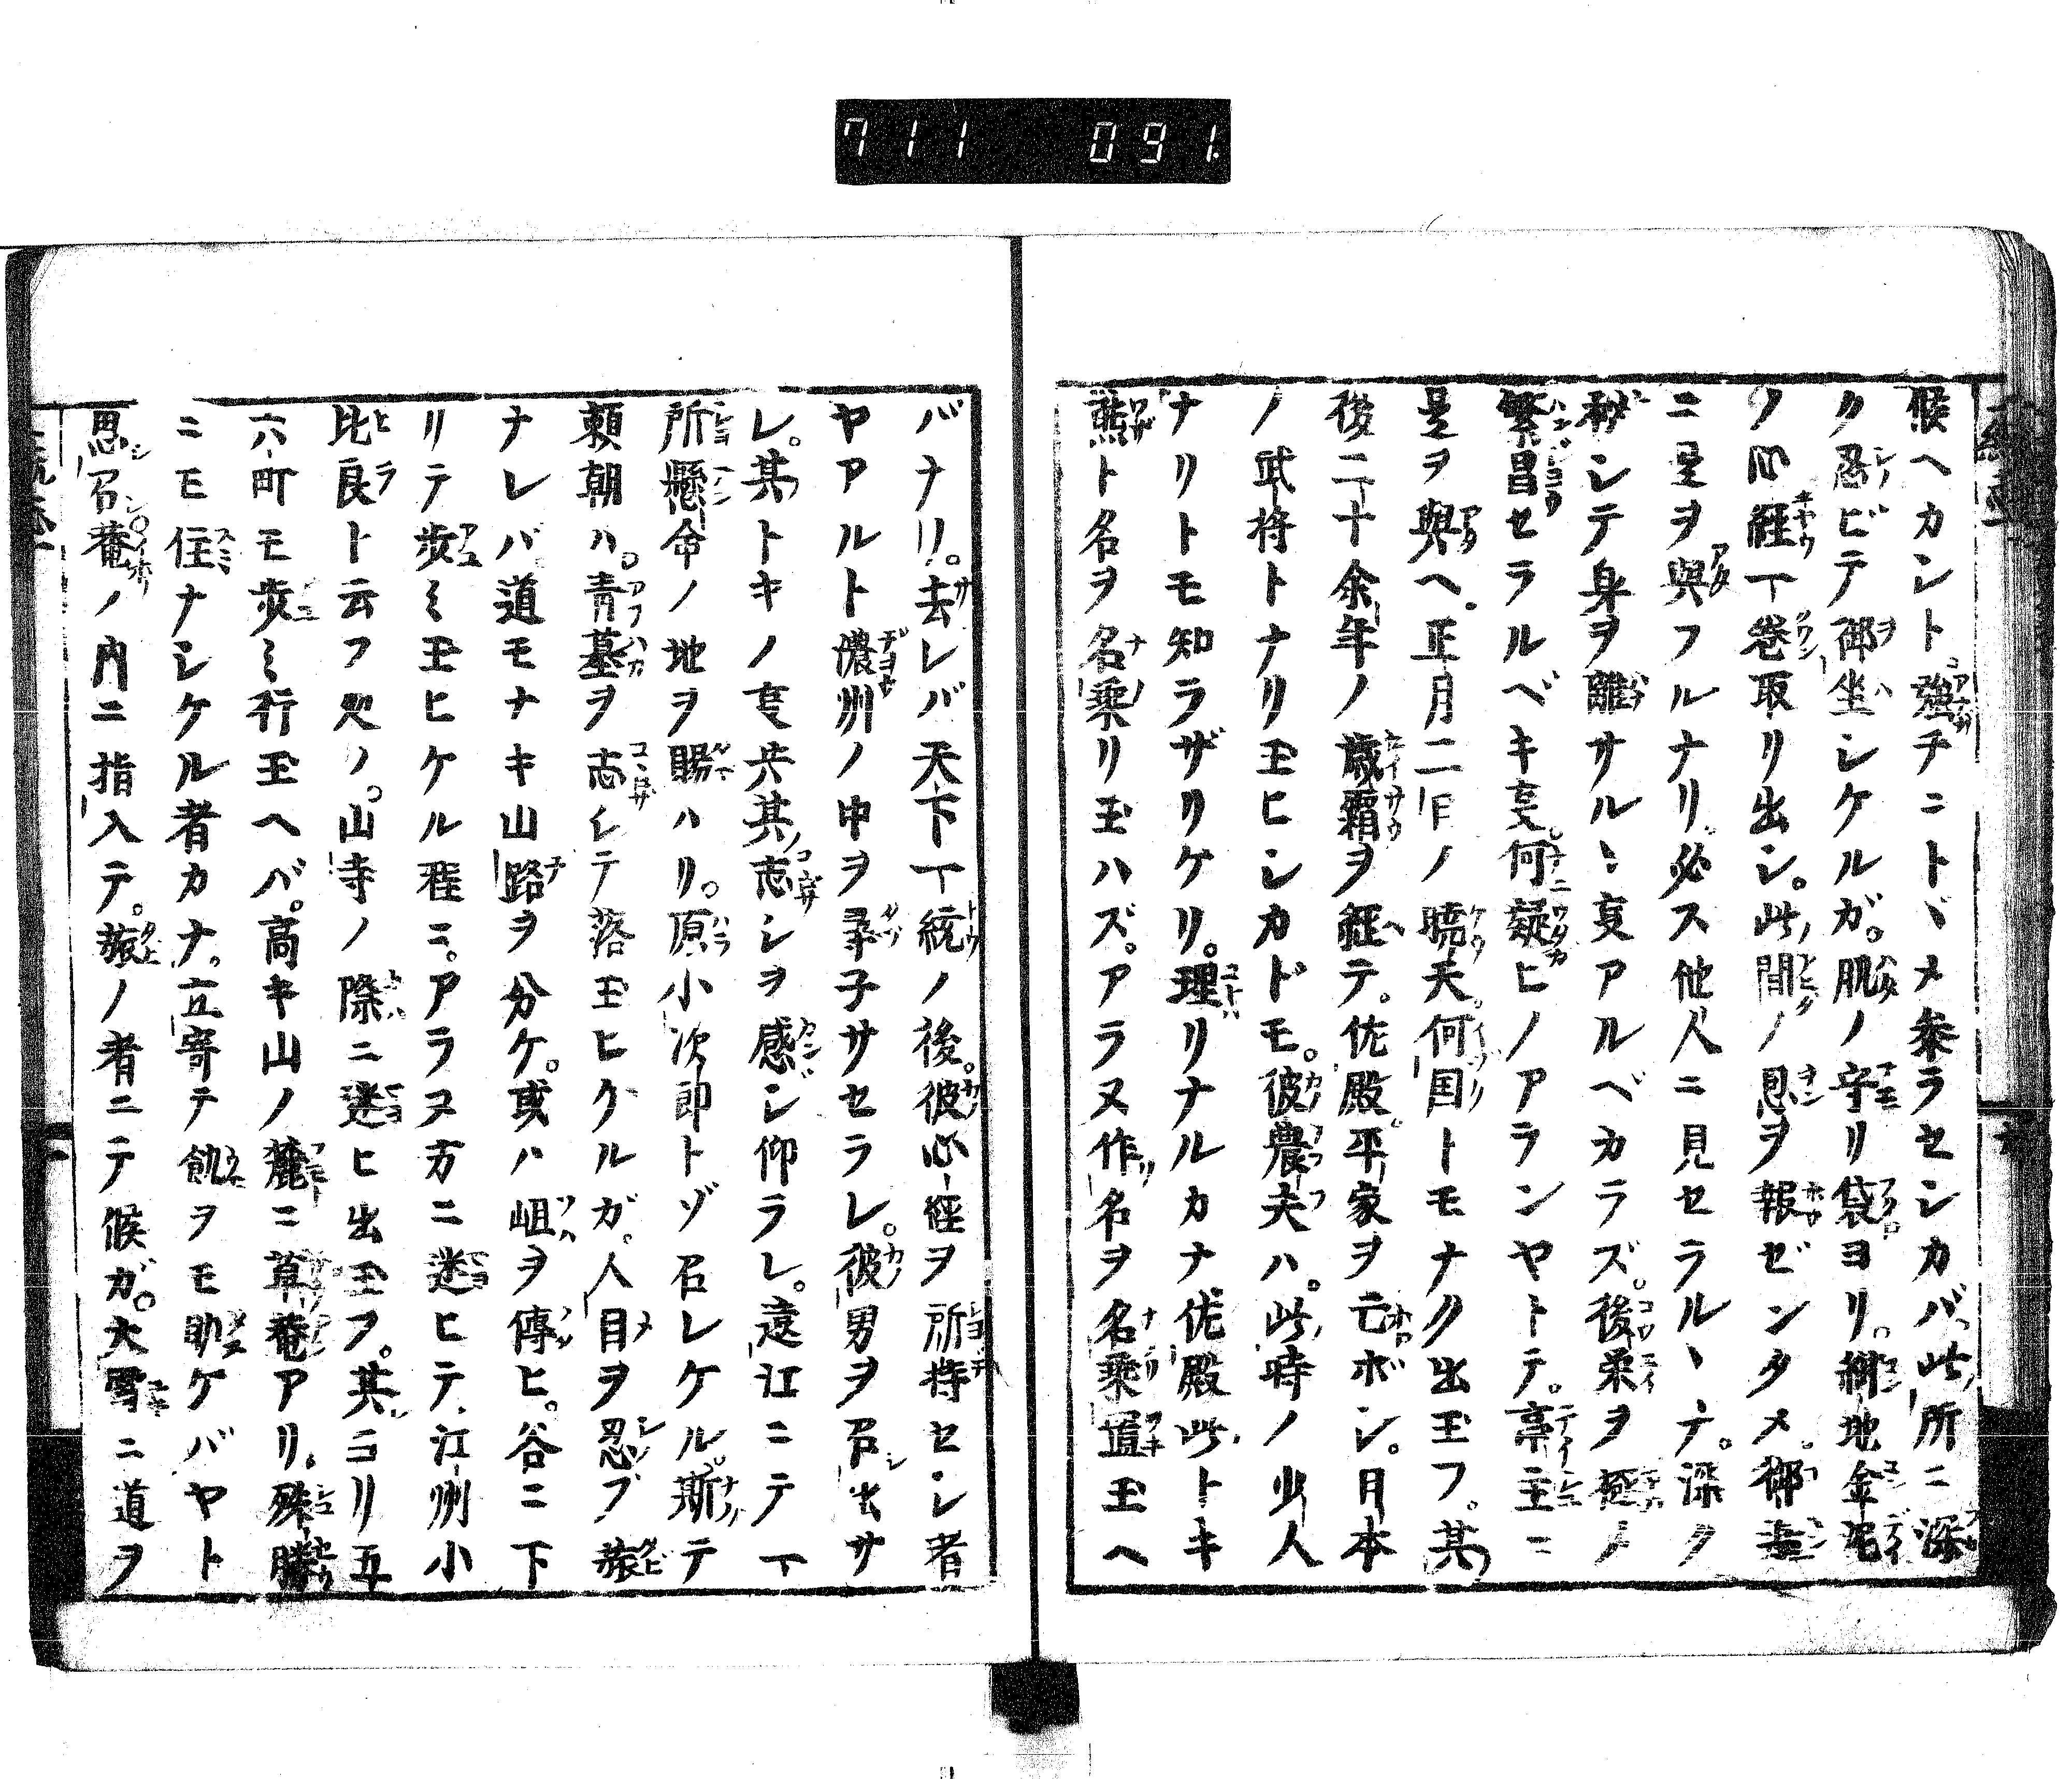 711 091.
候ヘカント強チニトヽメ参ラセシカバ此所ニ深
ク忍ビテ御坐シケルガ。肌ノ守リ袋ヨリ。紺地金泥
ノ心経一巻取リ出シ。此間ノ恩ヲ報ゼンタメ。御
ニ是ヲ與フルナリ。必ス他人ニ見セラルヽナ。深ク
秘シテ身ヲ離サルヽ叓アルベカラズ。後栄ヲ極メ
繁昌セラルベキ叓。何疑ヒノアランヤトテ。亭主ニ
是ヲ與ヘ。正月二日ノ暁天。何国トモナク出玉フ。其
後二十余年ノ歳霜ヲ経テ。佐殿平家ヲ亡ボシ。日本
ノ武将トナリ玉ヒシカドモ。彼農夫ハ。此時ノ少人
ナリトモ知ラザリケリ。理リナルカナ佐殿此トキ
熊ト名ヲ名乗リ玉ハズ。アラヌ作名ヲ名乗置玉ヘ
バナリ。去レバ天下一統ノ後。彼心経ヲ所持セシ者
ヤアルト濃州ノ中ヲ尋子サセラレ。彼男ヲ召出サ
レ。其トキノ叓共其志シヲ感ジ仰ラレ。遠江ニテ一
所懸命ノ地ヲ賜ハリ。原小次郎トゾ召レケル。斯テ
頼朝ハ。青墓ヲ志シテ落玉ヒケルガ。人目ヲ忍ブ旅
ナレバ道モナキ山路ヲ分ケ。或ハ岨ヲ傳ヒ。谷ニ下
リテ歩ミ玉ヒケル程ニ。アラヌ方ニ迷ヒテ江州小
比良ト云フ処ノ。山寺ノ際ニ迷ヒ出玉フ。其ヨリ五
六町モ歩ミ行玉ヘバ。高キ山ノ麓ニ草菴アリ。殊勝
ニモ住ナシケル者カナ。立寄テ飢ヲモ助ケバヤト
思召菴ノ内ニ指入テ。旅ノ者ニテ候ガ。大雪ニ道ヲ